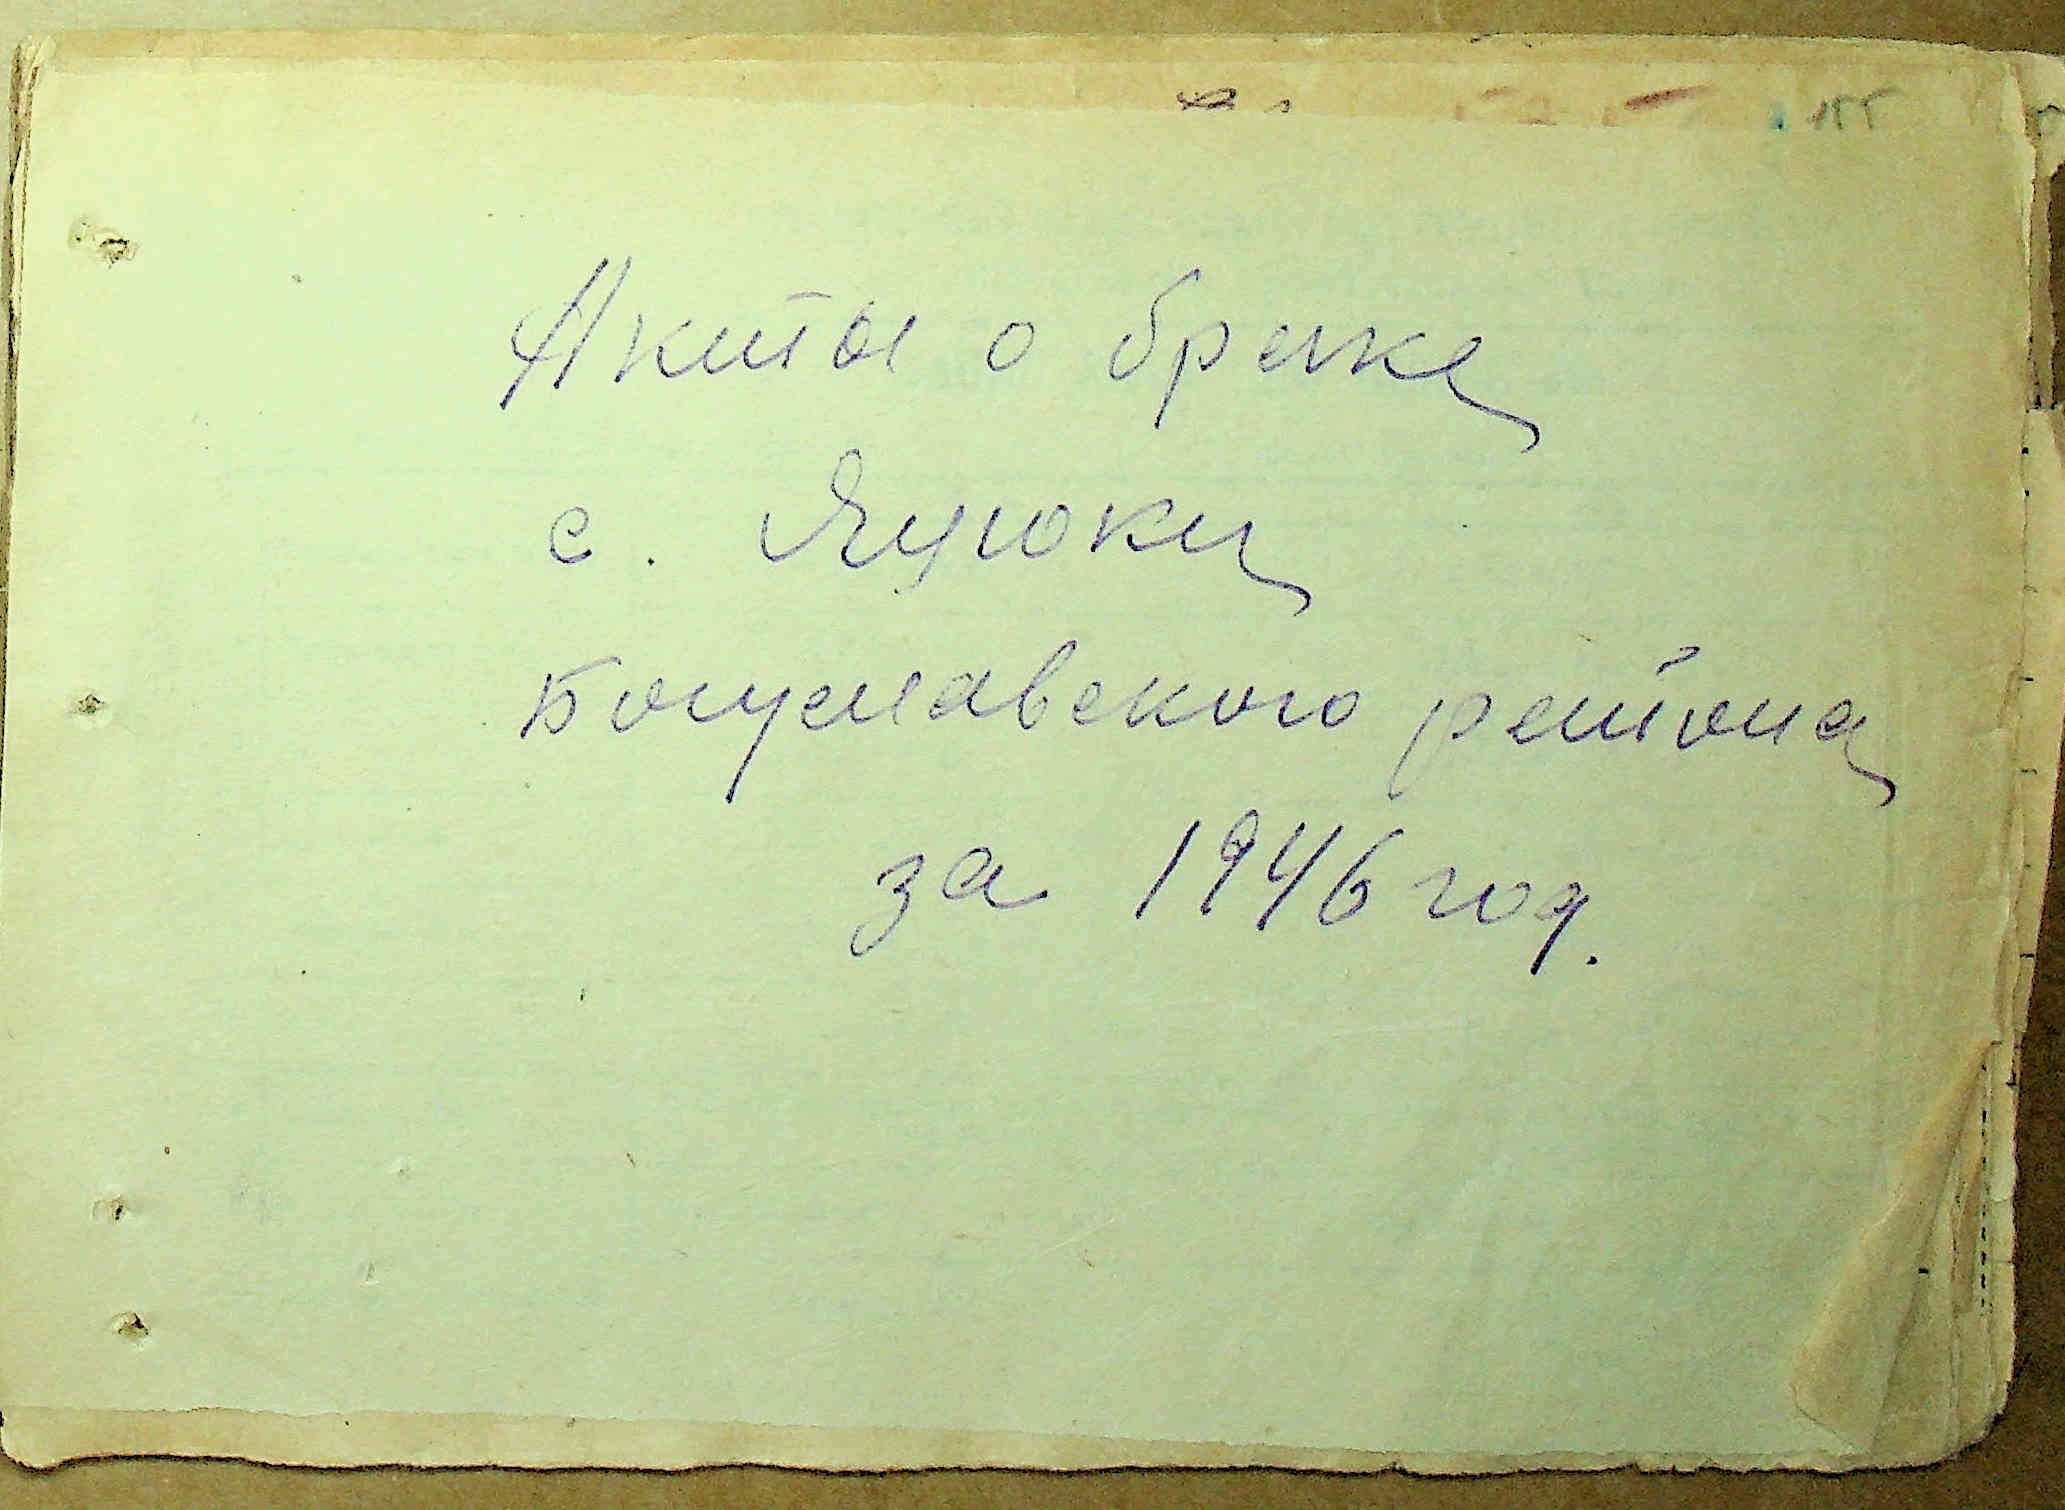 Акты о браке
с. Яцюки
Богуславского района
за 1946 год.